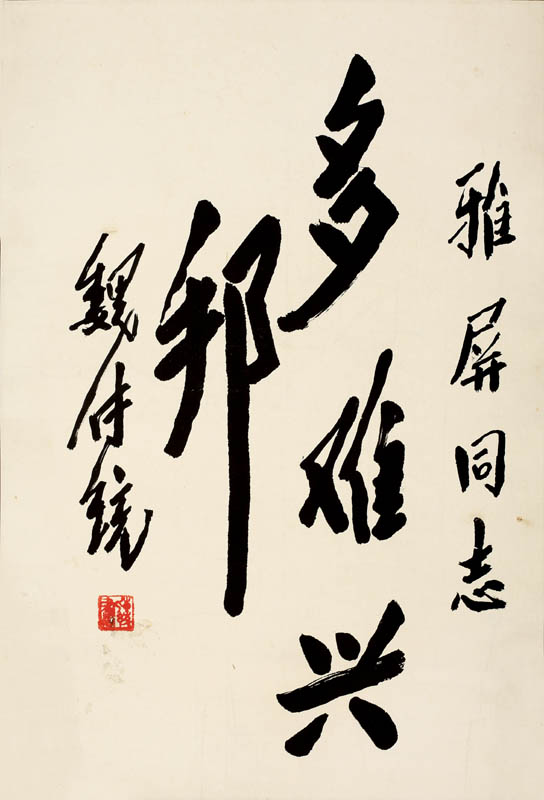 雅屏同志
多难兴
邦
魏传统